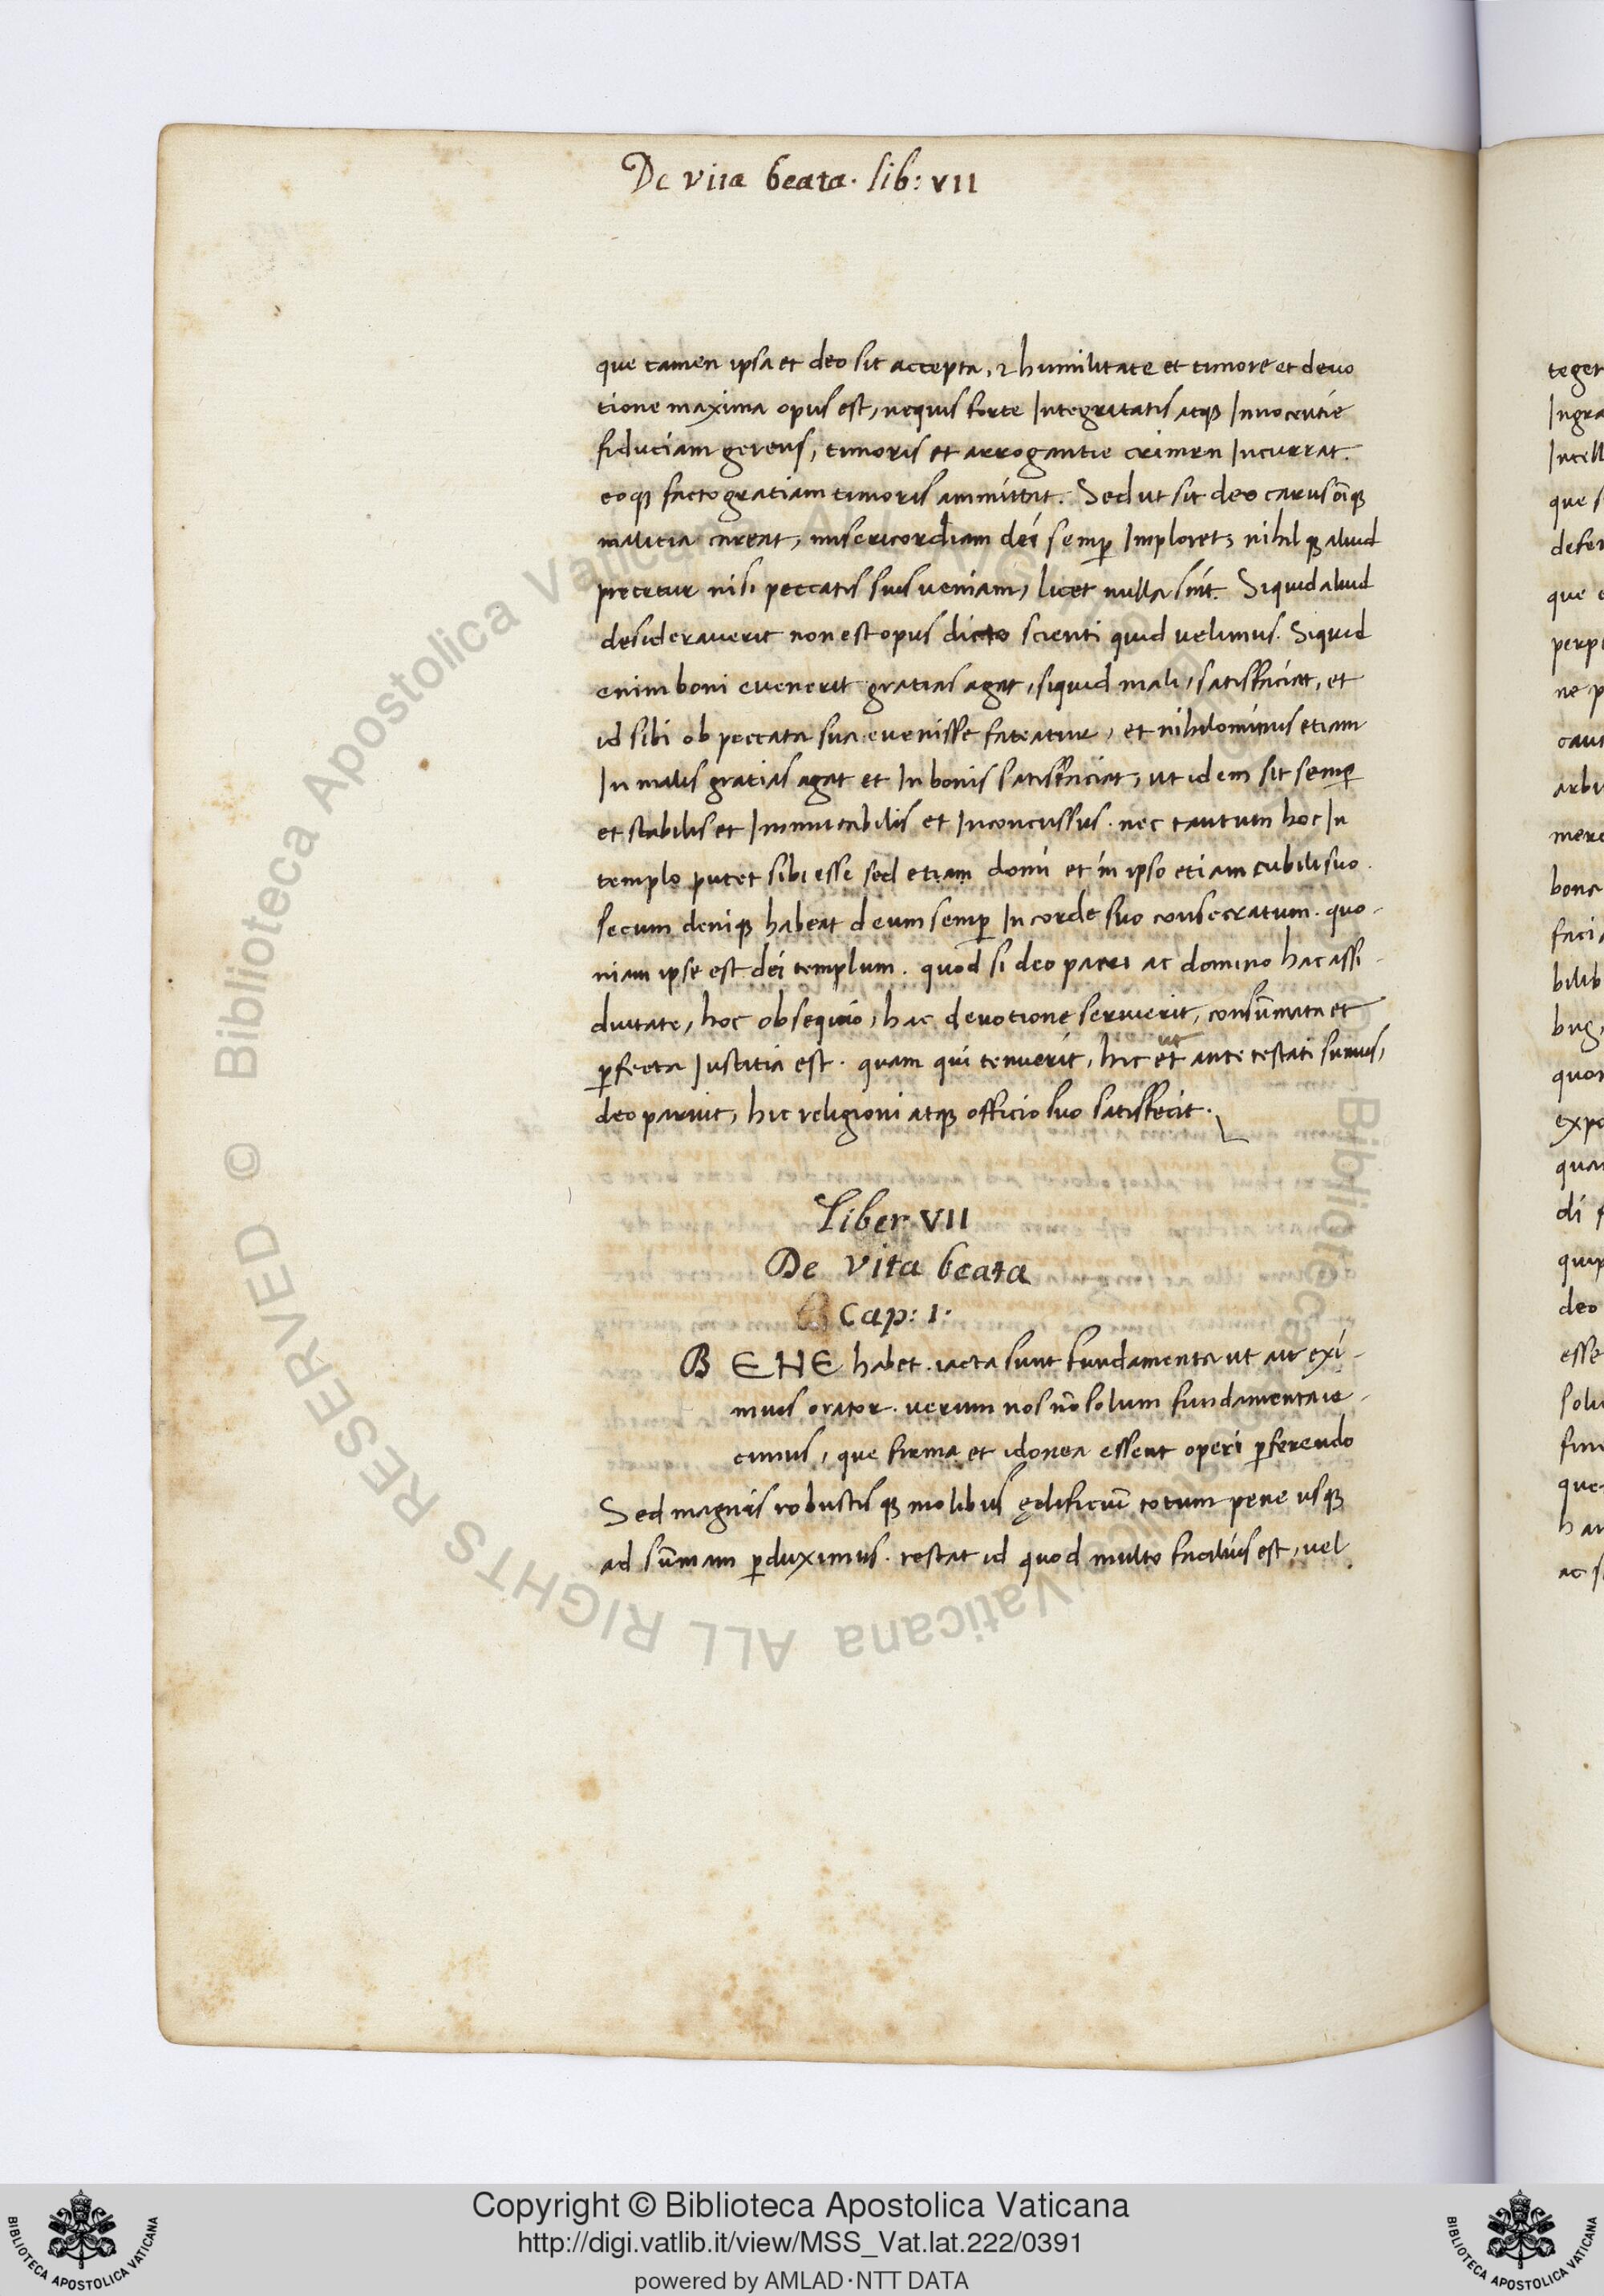 De vita beata. lib: VII
que tamen ipsa et deo sit accepta, et humilitate et timore et devo
tione maxima opus est, nequis forte Integritatis atq; Innocentie
fiduciam gerens, timoris et arrogantie crimen Incurrat.
eoq; facto gratiam timoris ammittat. Sed ut sit deo carus oīq;
malitia careat, misericordiam dei semp̄ Imploret, nihilq; aliud
precetur nisi peccatis suis veniam, licet nulla sint. Siquid aliud
desideraverit non est opus dicto scienti quid velimus. Siquid
enim boni evenerit gratias agat, siquid mali, satisfaciat, et
id sibi ob peccata sua evenisse fateatur, et nihilominus etiam
In malis gratias agat et In bonis satisfaciat, ut idem sit semp̄
et stabilis et Immutabilis et Inconcussus. nec tantum hoc In
templo putet sibi esse sed etiam domi et in ipso etiam cubili suo.
secum deniq; habeat deum semp̄ In corde suo consecratum. quo-
niam ipse est dei templum. quod si deo patri ac domino hac assi-
duitate, hoc obsequio, hac devotione servierit, consūmata et
ꝑfecta Iustitia est. quam qui tenuerit, hic et ut ante testati sumus,
deo paruit, hic religioni atq; officio suo satisfecit.
Liber VII
De vita beata
Cap: I:
B ENE habet. iacta sunt fundamenta ut ait exi-
mius orator. verum nos nō solum fundamenta ie-
cimus, que firma et idonea essent operi ꝑferendo
Sed magnis robustisq; molibus ędificiū totum pene usq;
ad sūmam ꝑduximus. restat id quod multo facilius est, vel
teger
Ingra
Intell
que s
defen
que
perp
ne p
caut
arbi
mere
bona
faci
bilib
bus
quon
expo
qua
di
quip
deo
esse
solu
fun
que
ha
ac s
© Biblioteca Apostolica Vaticana ALL RIGHTS RESERVED
© Biblioteca Apostolica Vaticana ALL RIGHTS RESERVED
BIBLIOTECA APOSTOLICA VATICANA
Copyright © Biblioteca Apostolica Vaticana
http://digi.vatlib.it/view/MSS_Vat.lat.222/0391
powered by AMLAD·NTT DATA
BIBLIOTECA APOSTOLICA VATICANA